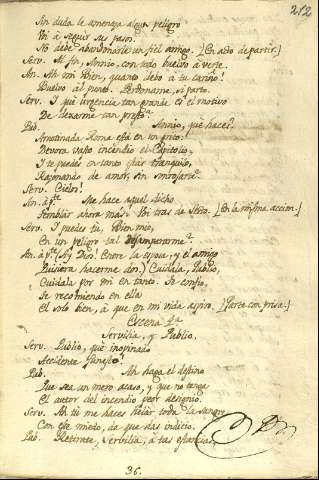 212
Sin duda le amenaza algun peligro
Voi à seguir sus pasos.
No debe abandonarle un fiel amigo. [En acto de partir.]
Serv. Al fin, Annio, con todo buelvo à verte.
An. Ah mi Bien, quanto debo à tu cariño!
Buelvo al punto. Perdoname, si parto.
Serv. I què urgencia tan grande es el motivo
De dexarme tan prest.ᵒ
Pub. Annio, què haces?
Amotinada Roma està en un grito:
Devora vasto incendio el Capitolio,
I te puedes en tanto estàr tranquilo,
Razonando de amor, sin
Serv. Cielos!
An. à p.ᵗᵉ Me hace aquel dicho
Temblar ahora mas. Voi tras de Sexto. [En la misma accion.]
Serv. I puedes tu, Bien mio,
En un peligro tal desampararme?
An. à p.ᵗᵉ (Ay Dios! Entre la esposa, y el amigo
Quisiera hacerme dos.) Cuidala, Publio,
Cuidala por mi en tanto. Te confio,
Te recomiendo en ella
El solo bien, à que en mi vida aspiro. [Parte con prisa.]
Escena
Servilia, y Publio.
Serv. Publio, què inopinado
Accidente funesto!
Pub. Ah haga el destino
Que sea un mero acaso, y que no tenga
El autor del incendio peor designio.
Serv. Ah tu me haces helar toda la sangre
Con ese miedo, de que das indicio.
Pub. Retirate, Servilia, à tus estancias,
36.